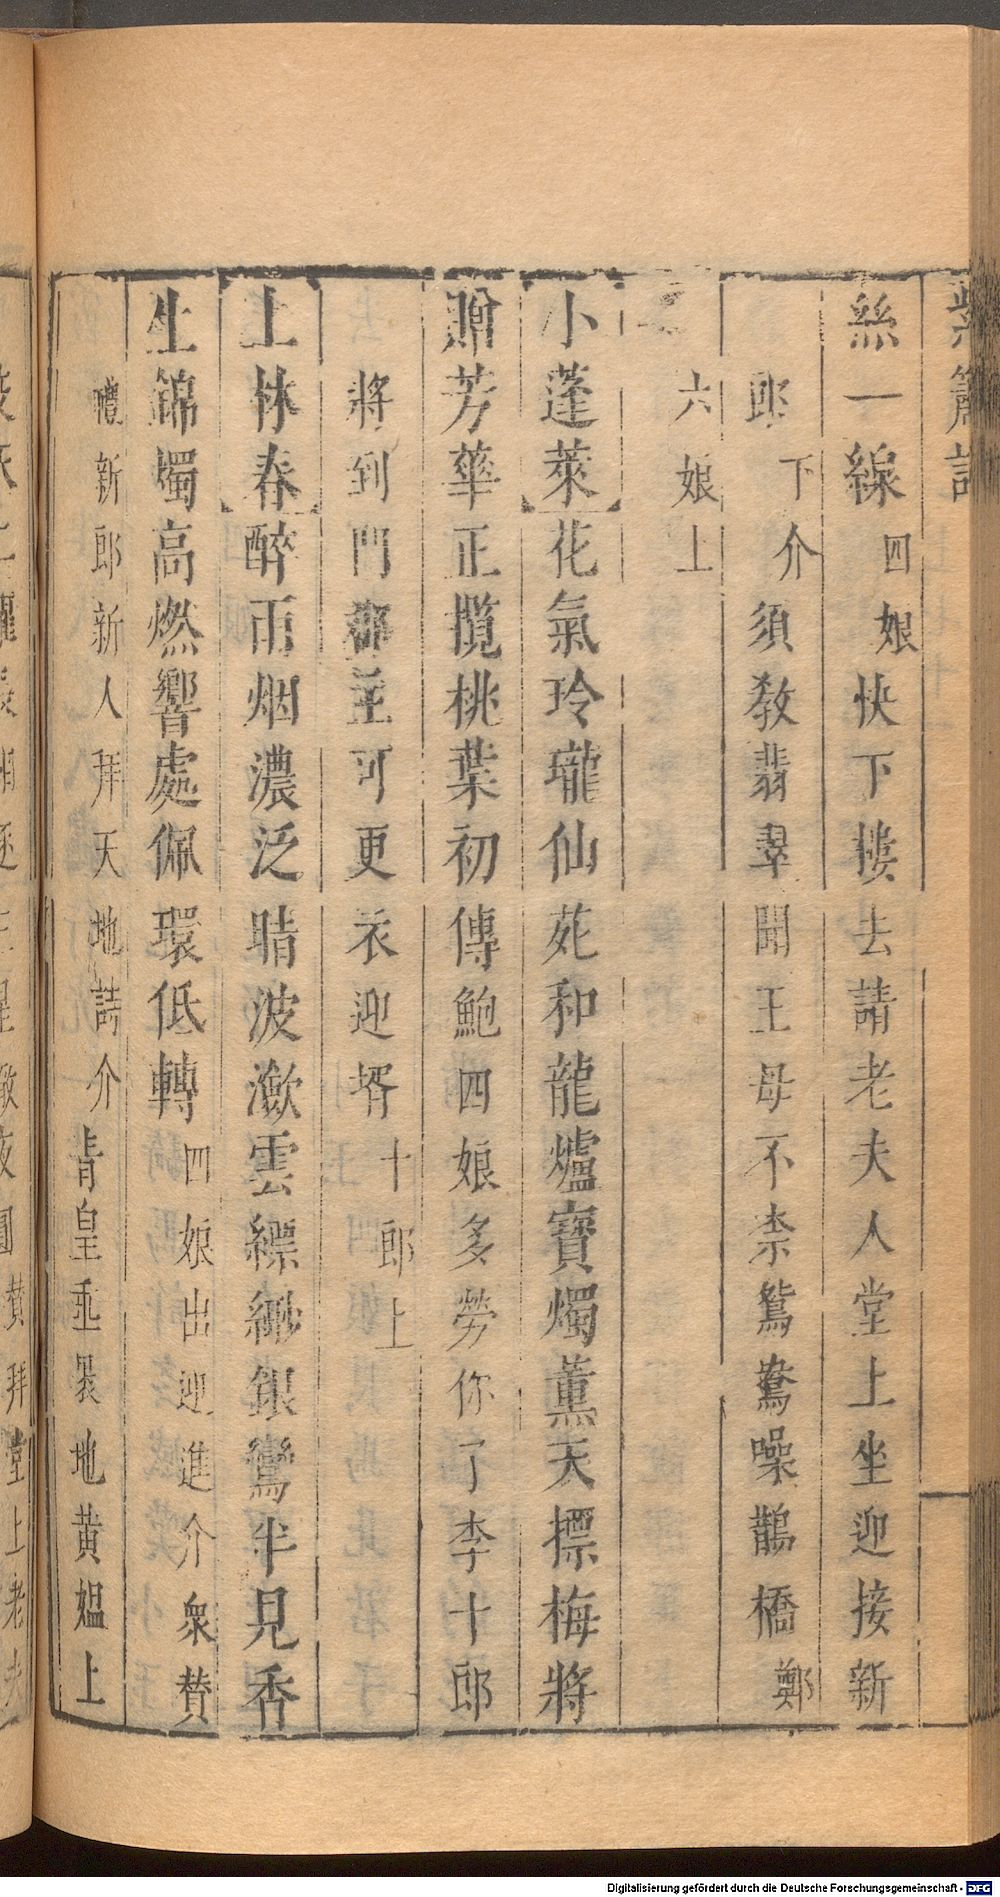 紫簫記
絲一線四娘快下樓去請老夫人堂上坐迎接新
郎下介須教翡翠聞王母不柰鴛鴦噪鵲橋鄭
六娘上
小蓬萊花氣玲瓏仙苑和龍爐寶燭薰天摽梅將
贈芳華正攬桃葉初傳鮑四娘多勞你了李十郎
將到門郡主可更衣迎壻十郎上
上林春醉雨烟濃泛晴波潋雲縹緲銀鸞半見香
生錦燭高燃響處佩環低轉四娘出迎進介衆賛
禮新郎新人拜天地請介肯皇垂㫤地黄媪上
Digitalisierung gefördert durch die Deutsche Forschungsgemeinschaft - DFG